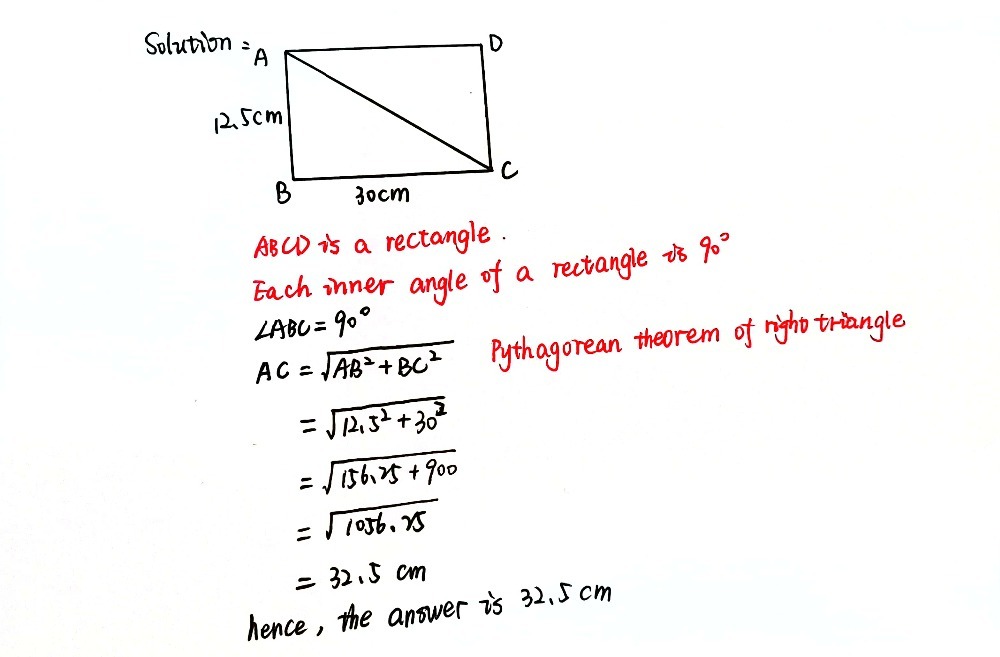 Solution = A D
12.5cm
B 30cm C
ABCD is a rectangle.
Each inner angle of a rectangle is 90°
∠ABC = 90°
AC = √AB² + BC² Pythagorean theorem of right triangle
= √12.5² + 30²
= √156.25 + 900
= √1056.25
= 32.5 cm
hence, the answer is 32.5 cm